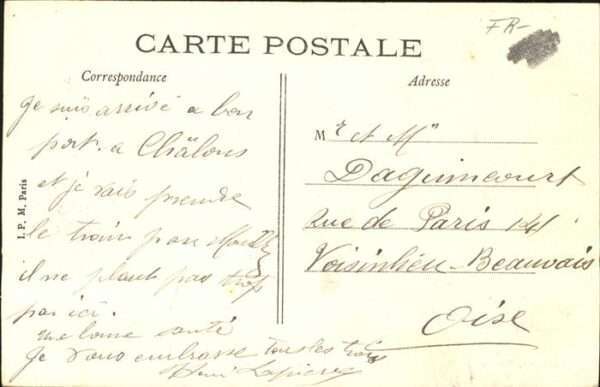 FR-
CARTE POSTALE
Correspondance
Adresse
I. P. M. Paris
Je suis arrivé a bon
port. a Châlons
et je vais prendre
le train pour
il ne pleut pas trop
par ici.
une bonne santé
Je vous embrasse tous les trois
Henri
M r et M
Daguincourt
Rue de Paris 141
Voisinlieu-Beauvais
Oise